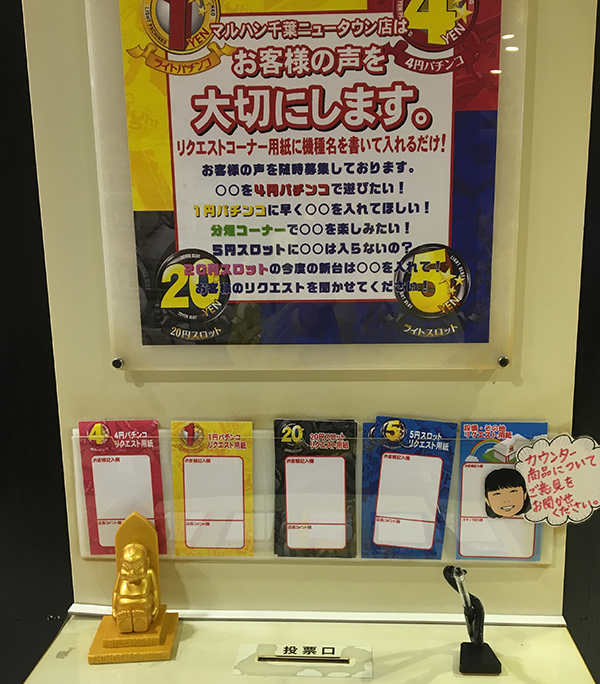 1
YEN
ライトパチンコ
4
YEN
4円パチンコ
マルハン千葉ニュータウン店は。
お客様の声を
大切にします。
リクエストコーナー用紙に機種名を書いて入れるだけ!
お客様の声を随時募集しております。
○○を4円パチンコで遊びたい!
1円パチンコに早く○○を入れてほしい!
分煙コーナーで○○を楽しみたい!
5円スロットに○○は入らないの?
20円スロットの今度の新台は○○を入れて!
お客様のリクエストを聞かせてください!
20
YEN
20円スロット
5
YEN
ライトスロット
4
4円パチンコ
リクエスト用紙
お客様記入欄
1
1円パチンコ
リクエスト用紙
お客様記入欄
20
20円スロット
リクエスト用紙
お客様記入欄
5
5円スロット
リクエスト用紙
お客様記入欄
設備・その他
リクエスト用紙
カウンター
商品について
ご意見を
お聞かせ
ください。
投票口